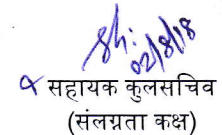 02/8/18
सहायक कुलसचिव
(संलग्नता कक्ष)